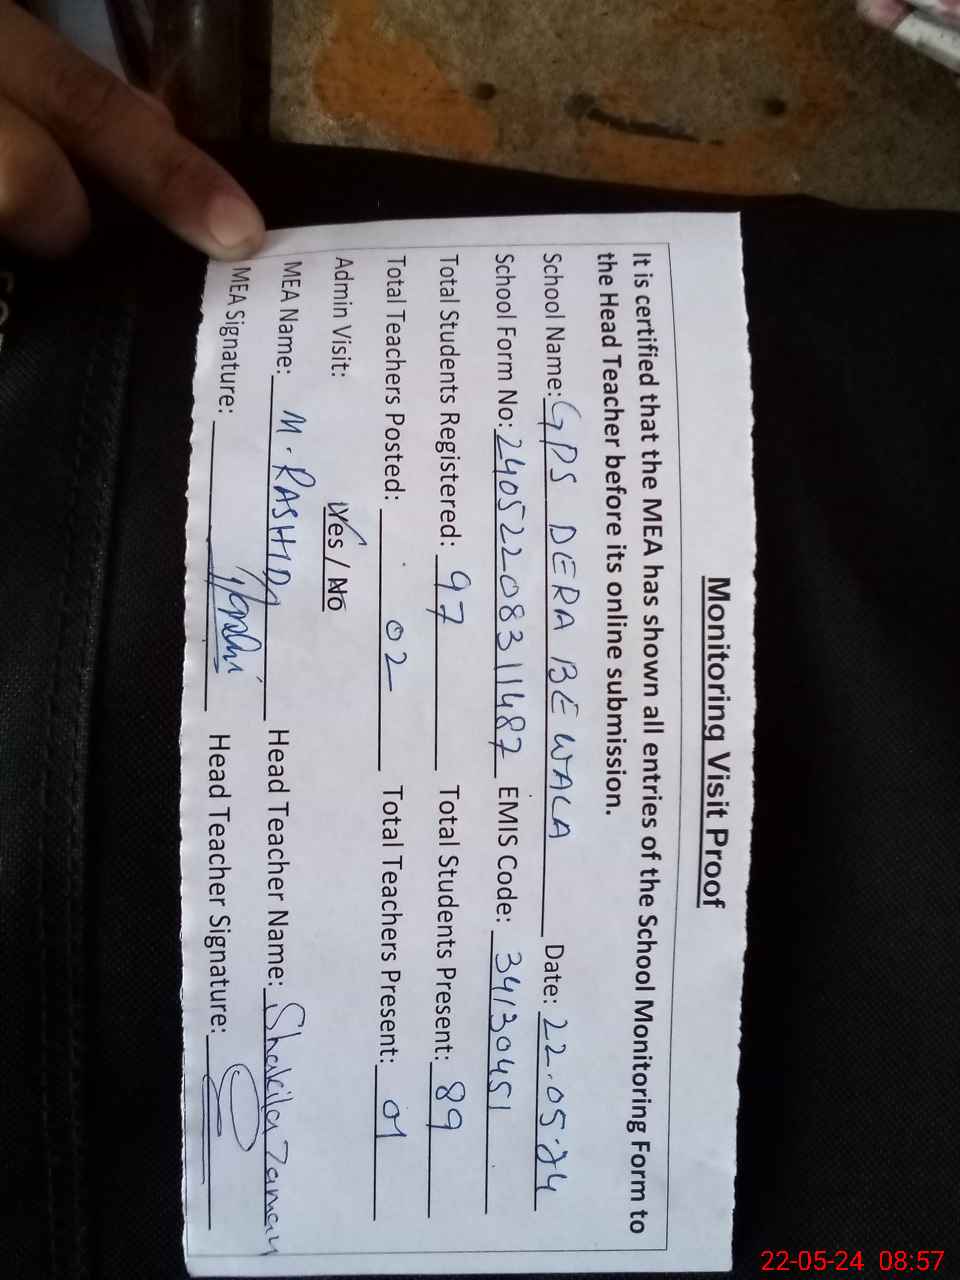 Monitoring Visit Proof
It is certified that the MEA has shown all entries of the School Monitoring Form to
the Head Teacher before its online submission.
School Name: GPS DERA BE WALA Date: 22.05.24
School Form No: 24052208311487 EMIS Code: 34130451
Total Students Registered: 97 Total Students Present: 89
Total Teachers Posted: 02 Total Teachers Present: 01
Admin Visit: Yes / No
MEA Name: M. RASHID Head Teacher Name: Shakila Zaman
MEA Signature: Head Teacher Signature:
22-05-24 08:57